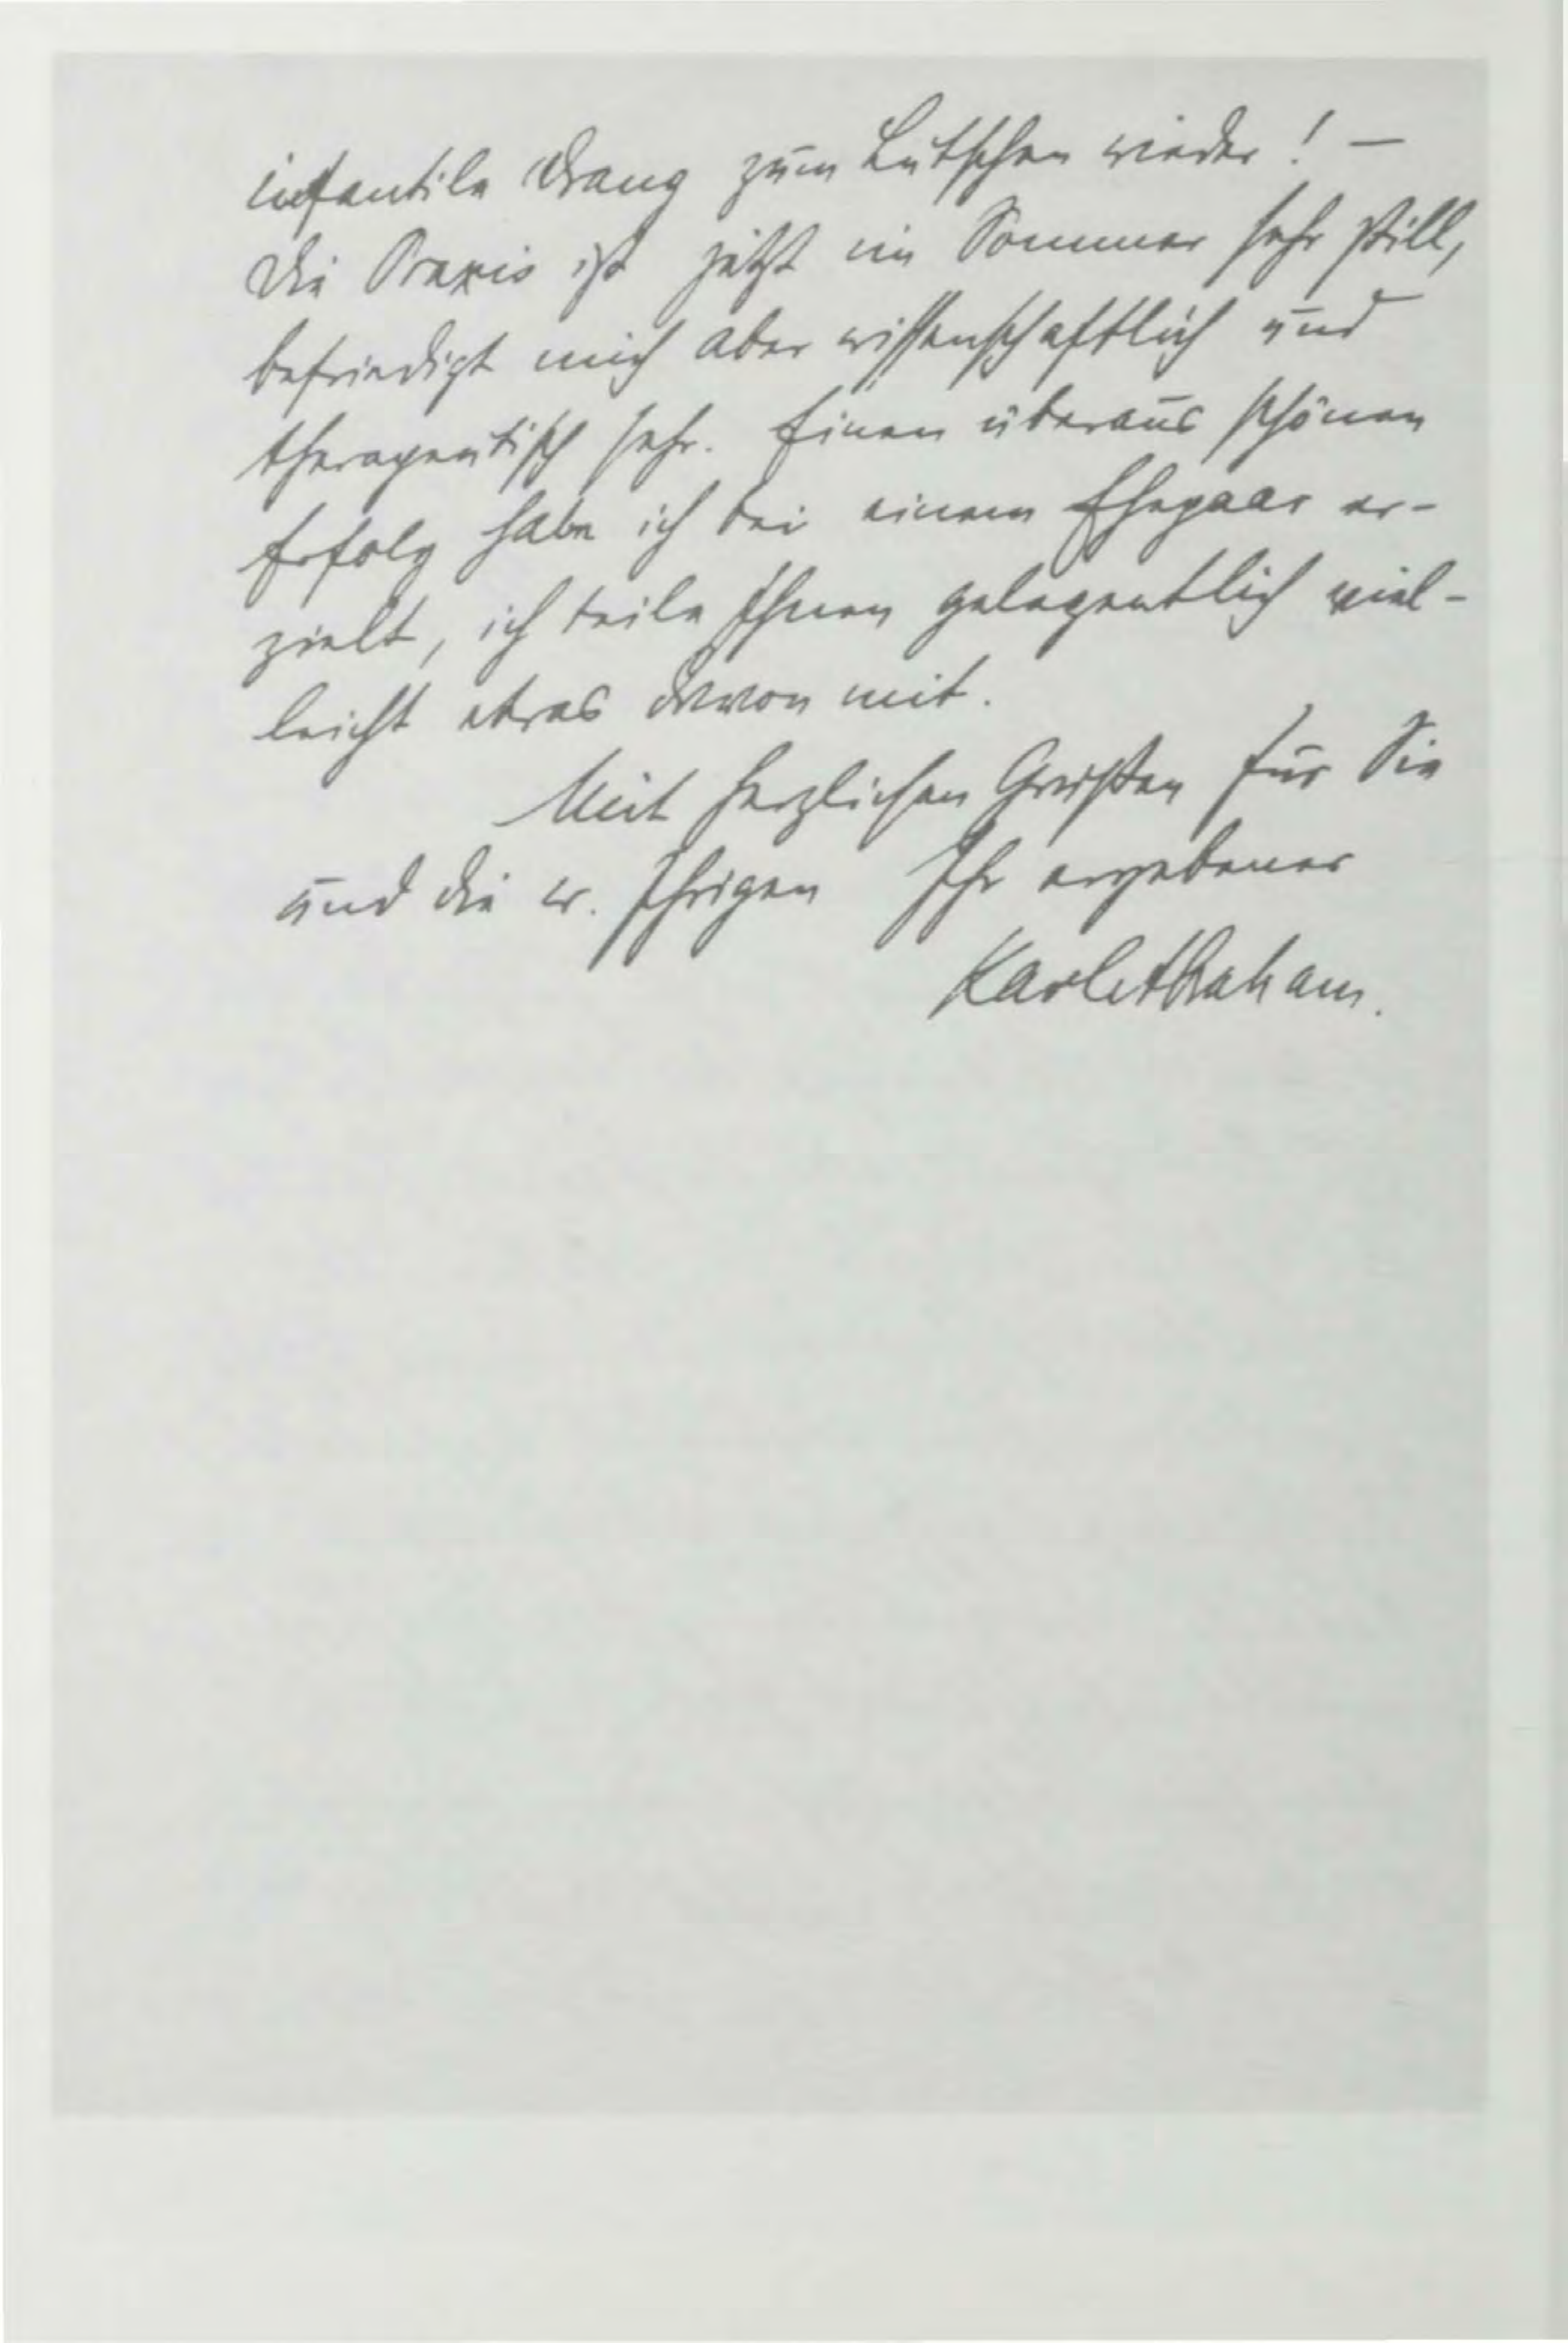 infantile Drang zum Lutschen wieder! —
Die Praxis ist jetzt im Sommer sehr still,
befriedigt mich aber wissenschaftlich und
therapeutisch sehr. Einen überaus schönen
Erfolg habe ich bei einem Ehepaar er-
zielt, ich teile Ihnen gelegentlich viel-
leicht etwas davon mit.
Mit herzlichen Grüßen für Sie
und die w. Ihrigen Ihr ergebener
Karl Abraham.